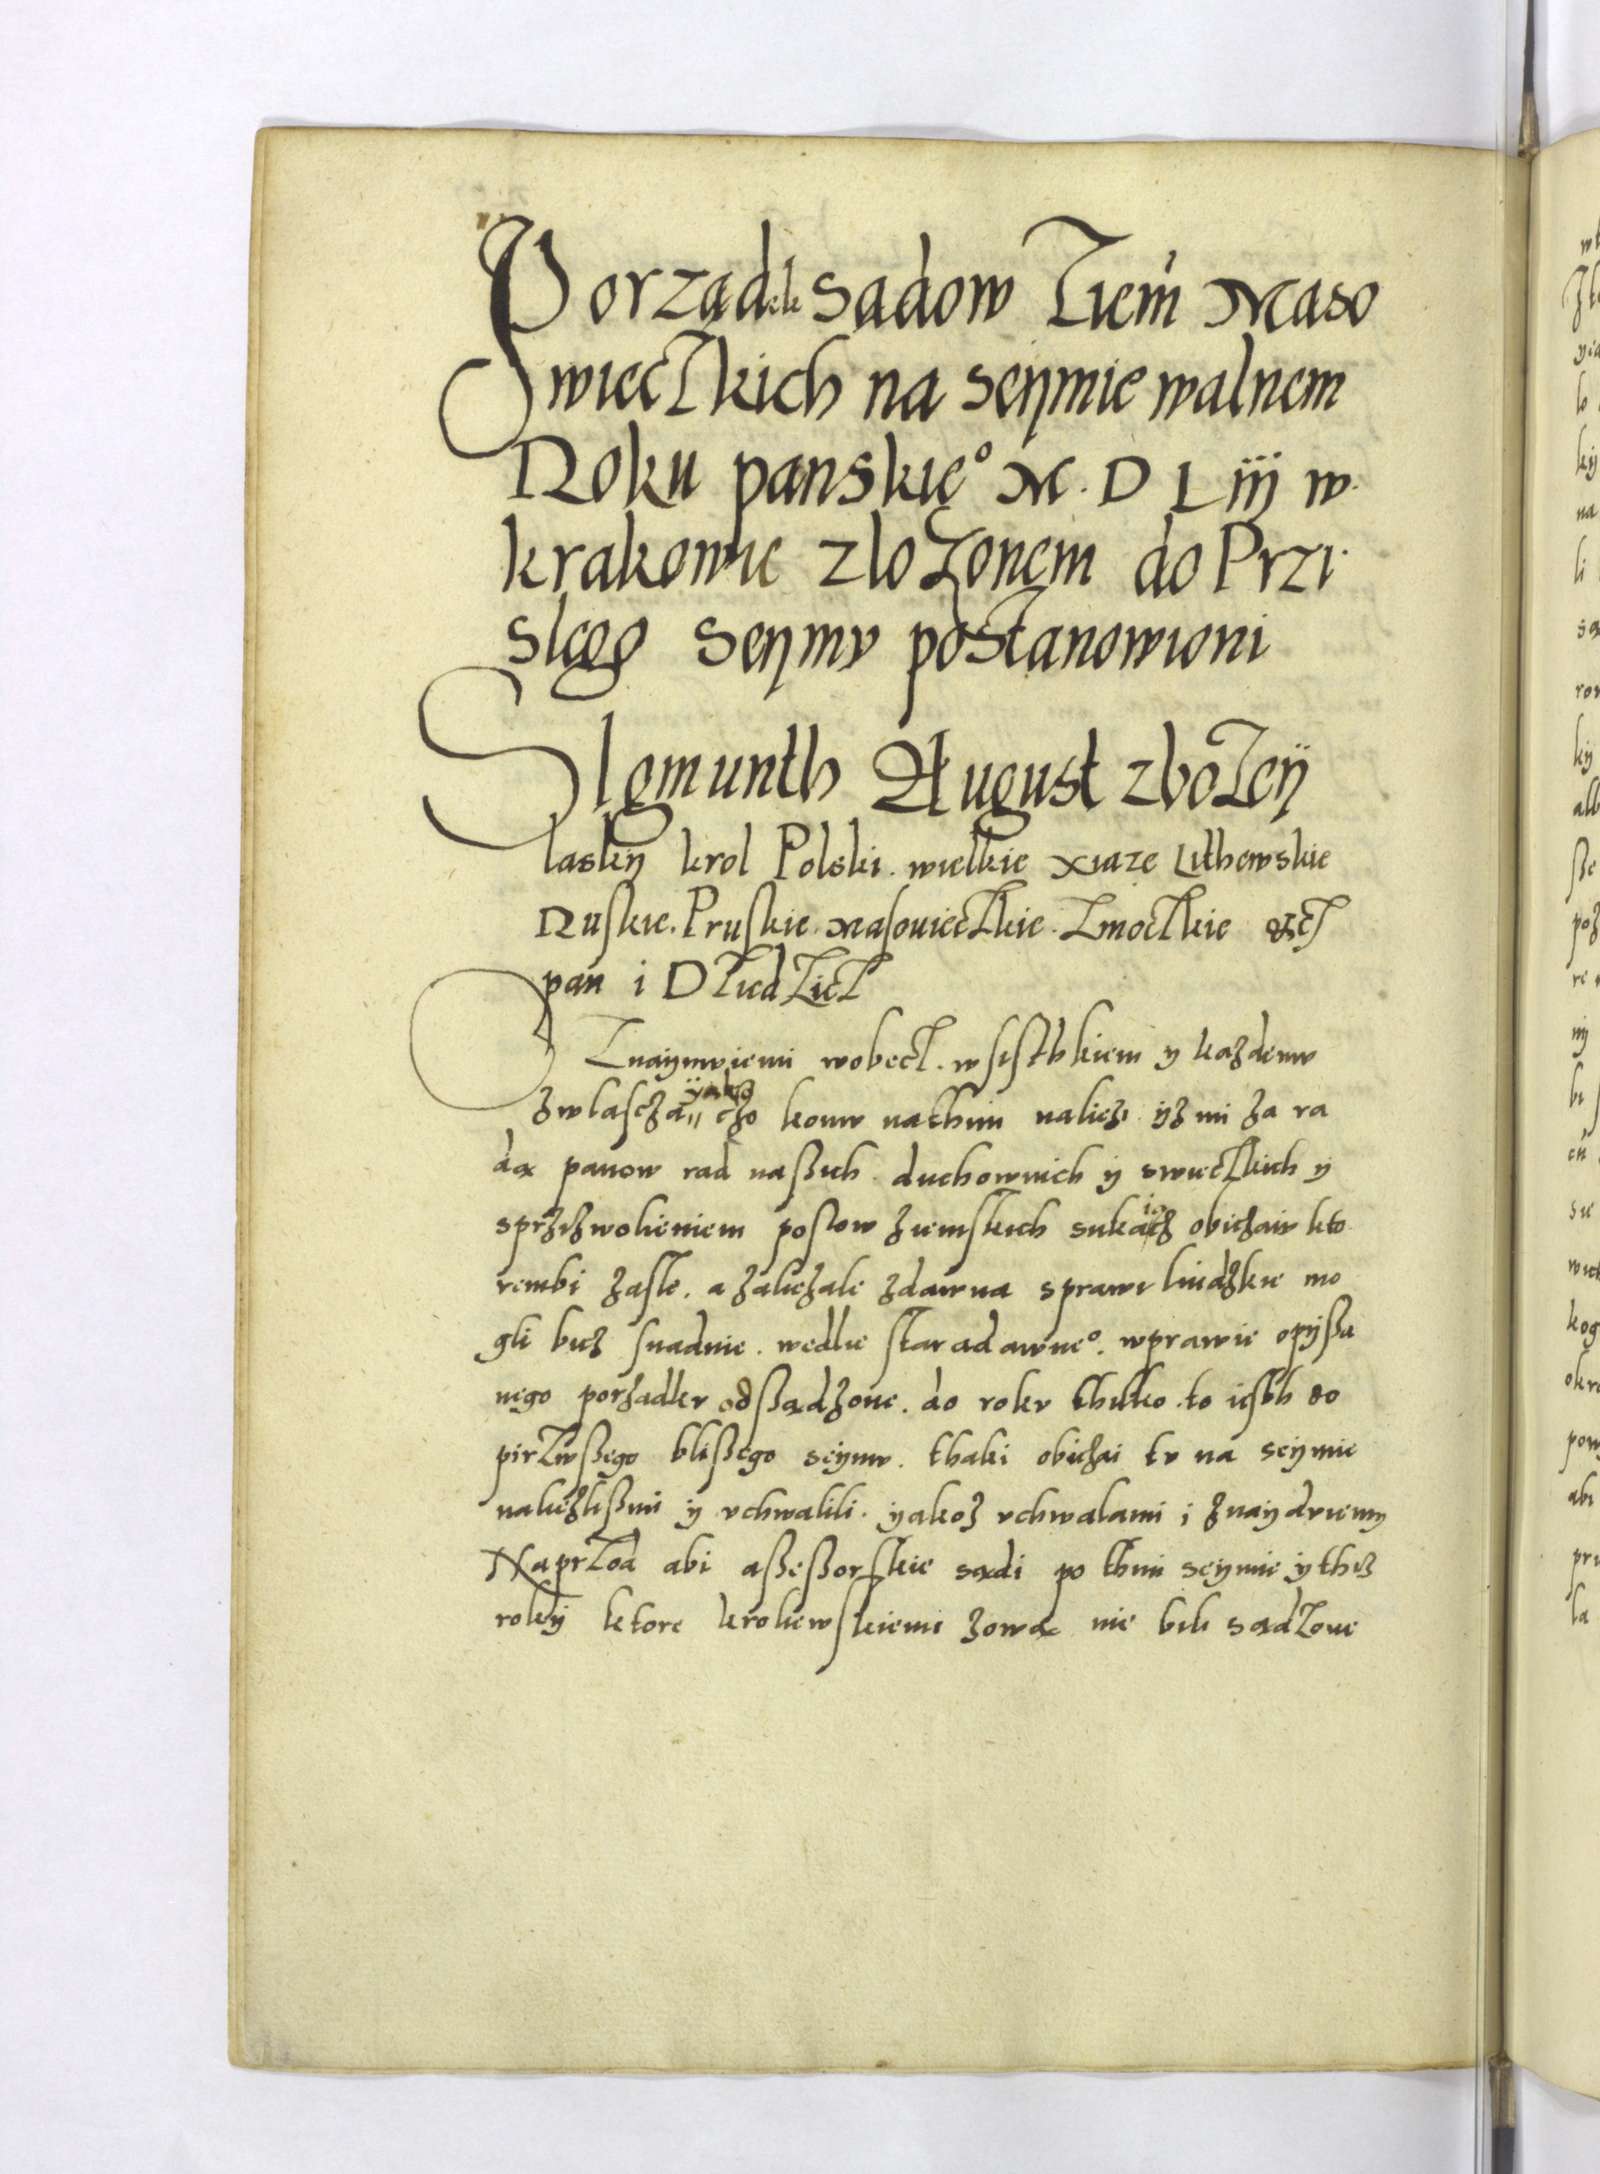 Porządek sadow Ziem Maso
wieczkich na seymie walnem
Roku panskie° M. D Liij w
krakowie zlozonem do Przi
slego seymv postanowioni
Sigmunth August zbozey
laskÿ krol Polski. wielkie xiaze Lithewskie
Ruskie. Pruskie. Masouieczkie. Zmoczkie &cz
pan i Dziedzicz
Znaymuiemi wobecz. wsisthkiem y kazdemv
zwlascza yako czo komv nathim naliezi yz mi za ra
da panow rad naßich. duchownich ÿ swieczkich ÿ
sprzizwolieniem poslow ziemskich obiczaiv kto
rembi zaszle. a zaliezale zdawna sprawi liudzkie mo
gli bicz snadnie. wedlie staradawne°. wprawie opÿßa
nego porzadkv odßadzone. do rokv thilko. to iesth do
pirzwßego blißego seÿmv. thaki obiczai tv na seÿmie
naliezlißmi ÿ vchwalili. ÿakoz vchwalami i znaÿdviemÿ
Naprzod abi aßeßorskie sadi po thim seÿmie ÿ thez
rokÿ ktore kroliewskiemi zowa nie bili sadzone